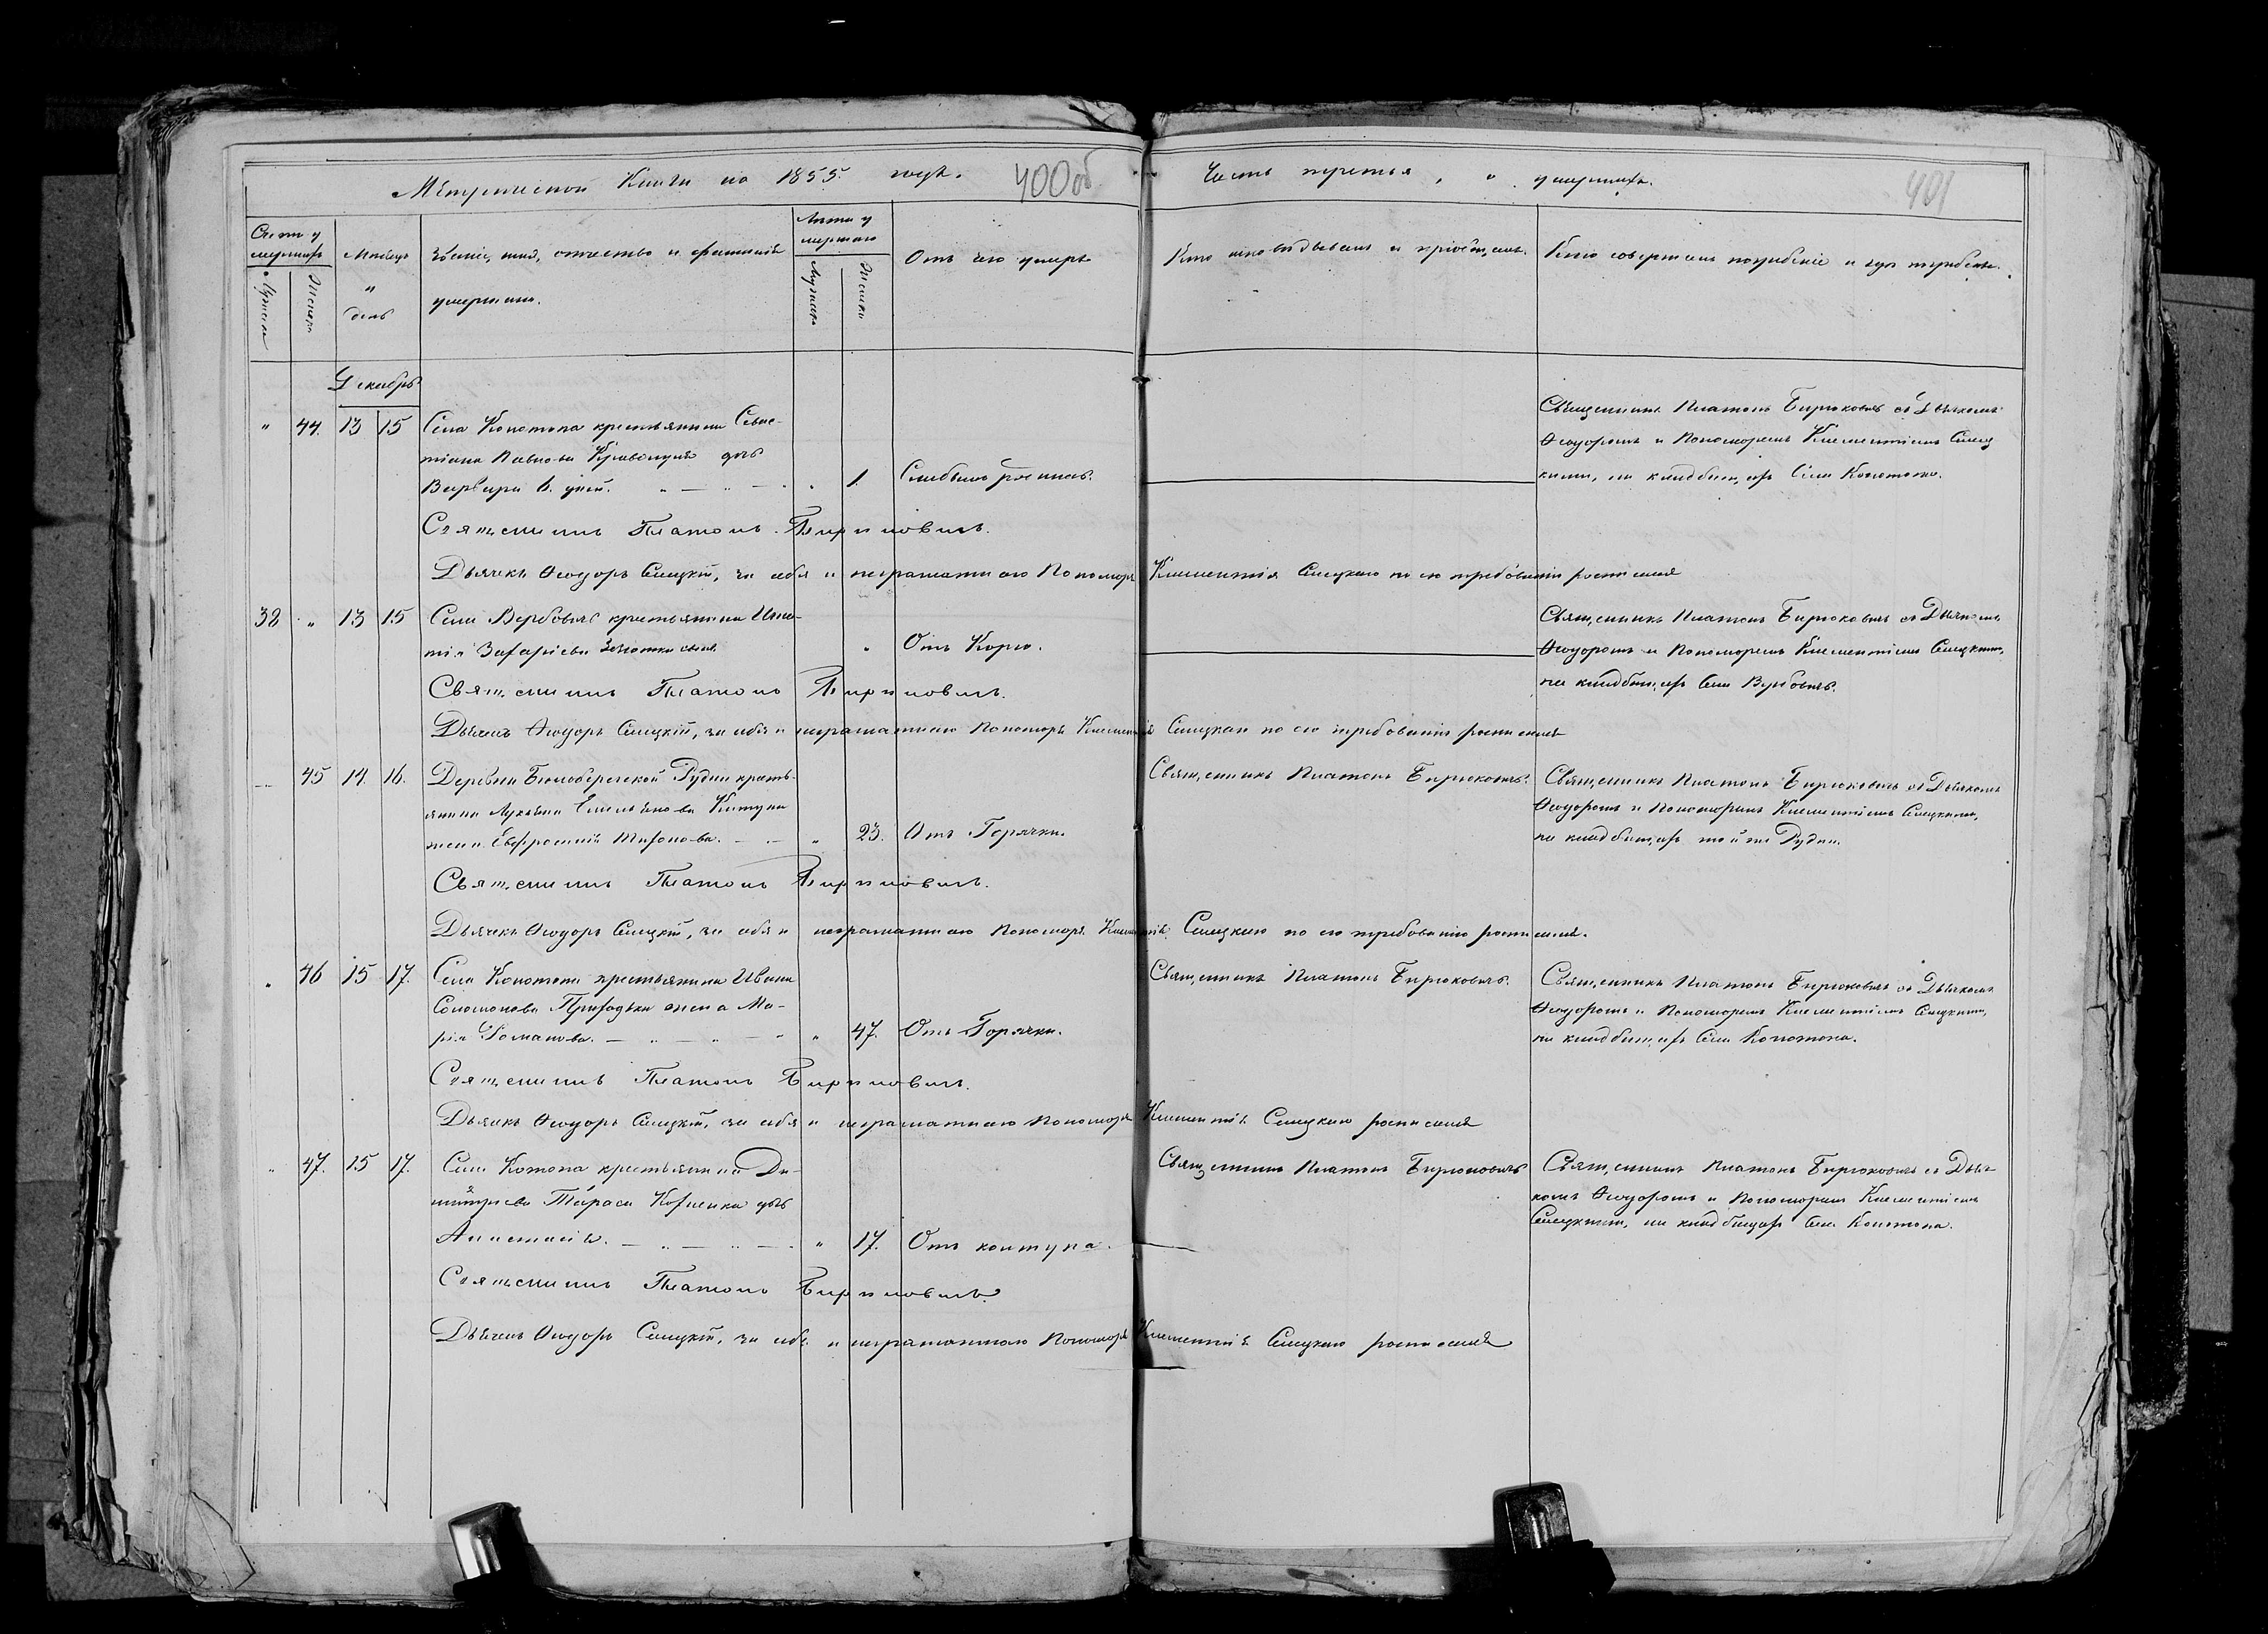 Метрической Книги на 1855. годъ. 400об
Часть третья, о умершихъ. 401
Счетъ умершихъ
Мужеска
Женска
Мѣсяцъ и день
Званіе, имя, отчество и фамилія умершаго.
Лѣта умершаго
Мужеска
Женска
Отъ чего умеръ
Кто исповѣдывалъ и пріобщалъ.
Кто совершалъ погребеніе и гдѣ погребены.
Декабрь
" 44. 13 15 Села Конотопа крестьянина Севас-
тіана Павлова дочь
Варвара " 1.
Священникъ Платонъ Бирюковичъ съ Дьячкомъ
Ѳеодоромъ и Пономаремъ Климентіемъ Сиец
кимъ, на кладбищѣ Села Конотопа.
Священникъ Платонъ Бирюковичъ.
Дьячекъ Ѳеодоръ за себя и неграматнаго Пономаря Климентія по его требованію росписался
38 " 13 15 Села Вербовичъ крестьянина Игна-
тія Захаріева сынъ " Отъ Кору.
Священникъ Платонъ Бирюковичъ съ Дьячкомъ
Ѳеодоромъ и Пономаремъ Климентіемъ
на кладбищѣ Села Вербовичъ.
Священникъ Платонъ Бирюковичъ.
Дьячекъ Ѳеодоръ за себя и неграматнаго Пономаря Климентія по его требованію росписался
45 14. 16. Деревни Белобережской Рудни кресть-
янина Емельянова
жена Евфросинія " 23. Отъ Горячки.
Священникъ Платонъ Бирюковичъ.
Священникъ Платонъ Бирюковичъ съ Дьячкомъ
Ѳеодоромъ и Пономаремъ Климентіемъ
на кладбищѣ той же Рудни.
Священникъ Платонъ Бирюковичъ.
Дьячекъ Ѳеодоръ за себя и неграматнаго Пономаря Климентія по его требованію росписался.
" 46 15 17. Села Конотопа крестьянина Ивана
Соломонова Приходьки жена Ма-
рія Романова. " 47. Отъ Горячки.
Священникъ Платонъ Бирюковичъ.
Священникъ Платонъ Бирюковичъ съ Дьячкомъ
Ѳеодоромъ и Пономаремъ Климентіемъ
на кладбищѣ Села Конотопа.
Священникъ Платонъ Бирюковичъ.
Дьячекъ Ѳеодоръ за себя и неграматнаго Пономаря Климентія росписался
" 47. 15 17. Села Котопа крестьянина Ди-
митріева Тараса дочь
Анастасія. " 17. Отъ
Священникъ Платонъ Бирюковичъ
Священникъ Платонъ Бирюковичъ съ Дьяч-
комъ Ѳеодоромъ и Пономаремъ Климентіемъ
на кладбищѣ Села Конотопа.
Священникъ Платонъ Бирюковичъ.
Дьячекъ Ѳеодоръ за себя и неграматнаго Пономаря Климентія росписался